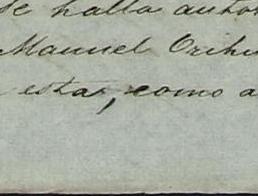 se halla auto
Manuel Orihu
esta, como a